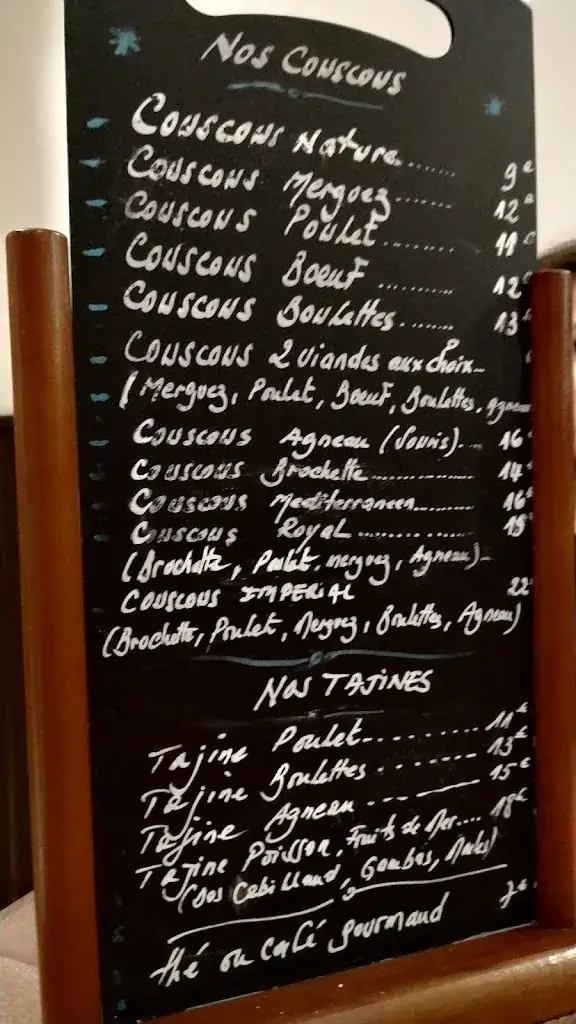 Nos Couscous
Couscous Nature...... 9€
Couscous Merguez...... 12€
Couscous Poulet........ 11€
Couscous Boeuf .......... 12€
Couscous Boulettes....... 13€
Couscous 2 viandes aux choix...
(Merguez, Poulet, Boeuf, Boulettes, Agneau
Couscous Agneau (Souris)... 16€
Couscous Brochette............... 14€
Couscous Mediterraneen......... 16€
Couscous Royal ............... 19€
(Brochette, Poulet, merguez, Agneau)
Couscous IMPERIAL 22€
(Brochette, Poulet, Merguez, Boulettes, Agneau)
Nos TAJINES
Tajine Poulet........... 11€
Tajine Boulettes - - - - - - - 13€
Tajine Agneau - - - 15€
Tajine Poisson, Fruits de Mer.... 18€
(Dos Cabillaud, Gambas, Moules)
thé ou café gourmand 7€